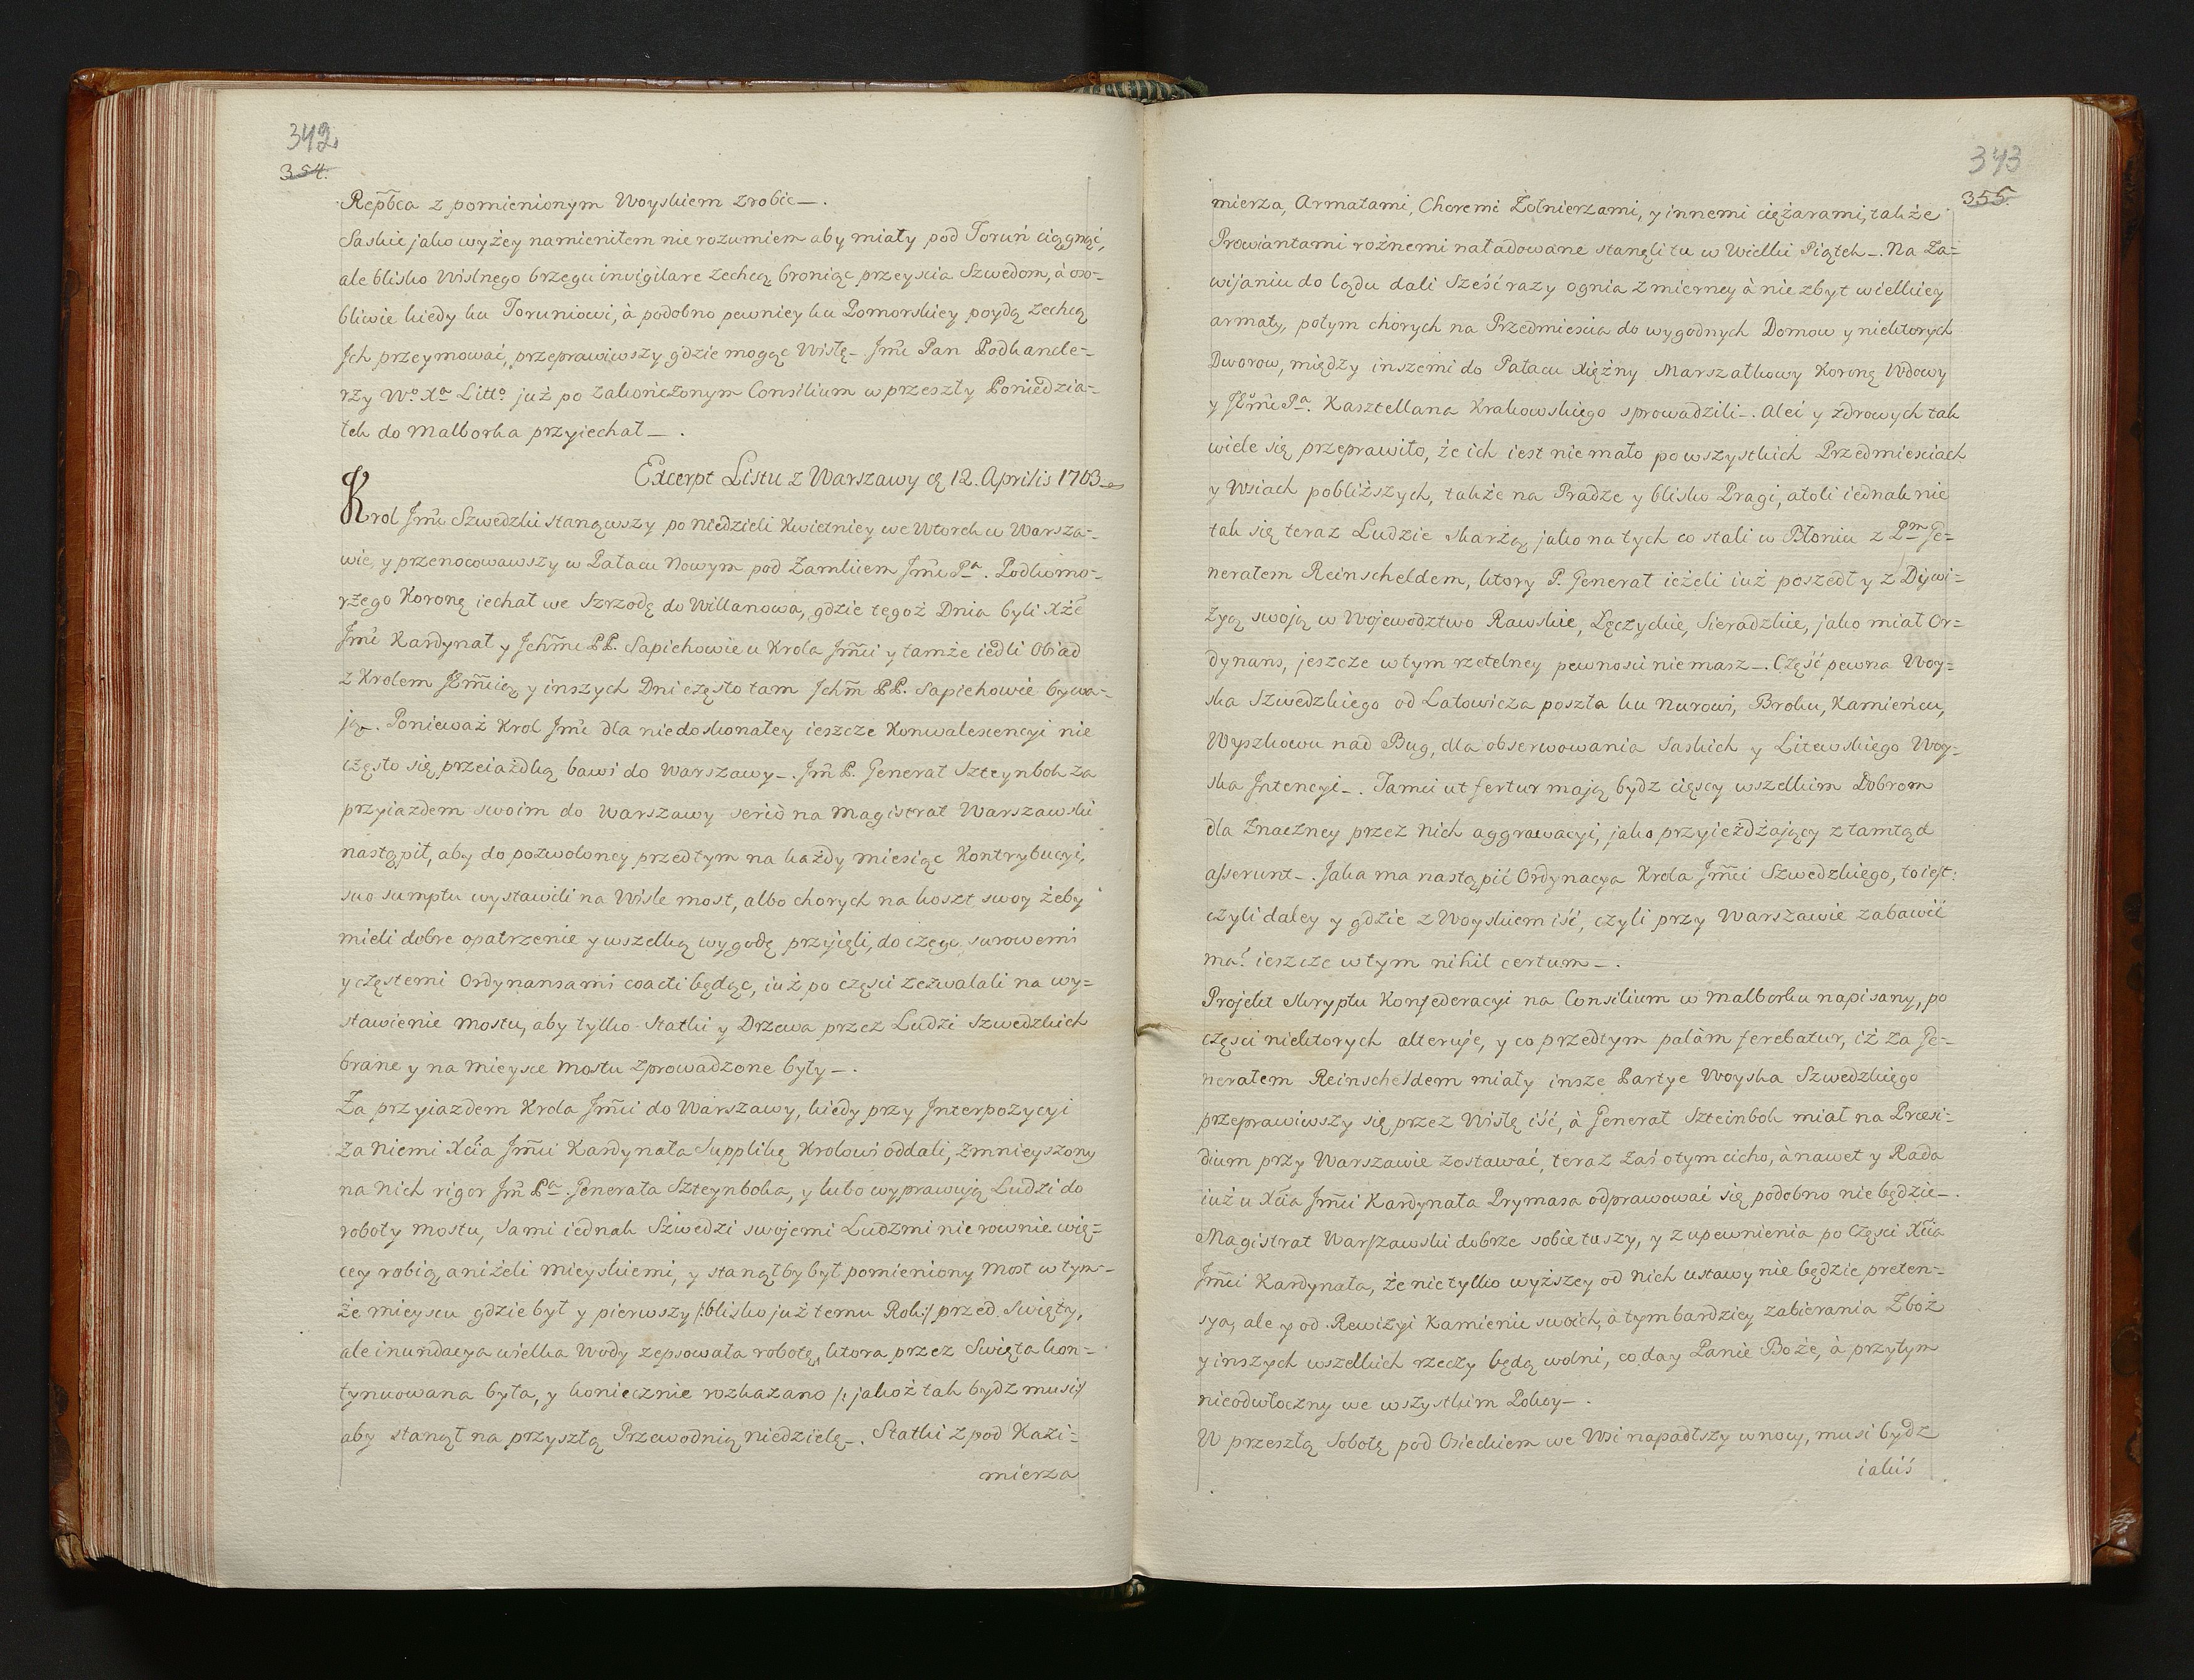 342.
354.
Repb̃ca z pomienionym Woyskiem zrobic—.
Saskie jako wyżey namieniłem nie rozumiem aby miały pod Toruń ciągnąć,
ale blisko Wislnego brzegu invigilare zechcą broniąc przeyscia Szwedom, à oso-
bliwie kiedy ku Toruniowi, à podobno pewniey ku Pomorskiey poydą zechcą
Ich przeymować, przeprawiwszy gdzie mogąc Wisłę—. Jm̃ć Pan Podkancle-
rzy Wº. Xª Littº. już po zakończonym Consilium w przeszły Poniedzia-
łek do Malborka przyiechał—.
Excerpt Listu z Warszawy d̃ 12. Aprilis 1703.
Krol Jm̃ć Szwedzki stanąwszy po Niedzieli Kwietniey we Wtorek w Warsza-
wie, y przenocowawszy w Pałacu Nowym pod Zamkiem Jm̃ć Pª. Podkomo-
rzego Koronę iechał we Szrzodę do Willanowa, gdzie tegoż Dnia byli Xżẽ
Jm̃ć Kardynał y Ichm̃ć PP. Sapiehowie u Krola Jm̃ci y tamże iedli Obiad
z Krolem JEm̃cią y inszych Dni często tam Ichm̃ PP. Sapiehowie bywa-
ją—. Ponieważ Krol Jm̃ć dla niedoskonałey ieszcze Konwalescencyi nie
często się przeiażdką bawi do Warszawy—. Jm̃ P. Generał Szteynbok za
przyiazdem swoim do Warszawy seriò na Magistrat Warszawski
nastąpił, aby do pozwoloney przedtym na każdy miesiąc Kontrybucyi,
suo sumptu wystawili na Wisle most, albo chorych na koszt swoy żeby
mieli dobre opatrzenie y wszelką wygodę przyjęli, do czego surowemi
y częstemi Ordynansami coacti będąc, iuż po części zezwalali na wy-
stawienie mostu, aby tylko Statki y Drzewa przez Ludzi Szwedzkich
brane y na mieysce Mostu zprowadzone były—.
Za przyiazdem Krola Jm̃ci do Warszawy, kiedy przy Interpozycyi
za niemi Xcia Jm̃ci Kardynała Supplikę Krolowi oddali, zmnieyszony
na nich rigor Jm̃ Pª. Generała Szteynboka, y lubo wyprawują Ludzi do
roboty mostu, sami iednak Szwedzi swojemi Ludzmi nie rownie wię-
cey robią aniżeli mieyskiemi, y stanąłby był pomieniony Most w tym-
że mieyscu gdzie był y pierwszy /:blisko już temu Rok:/ przed Swięty,
ale inundacya wielka Wody zepsowała robotę, ktora przez Swięta kon-
tynuowana była, y koniecznie rozkazano /: jakoż tak bydz musi:/
aby stanął na przyszłą Przewodnią niedzielę—. Statki z pod Kazi-
mierza
343
355.
mierza, Armatami, Choremi Żołnierzami, y innemi ciężarami, także
Prowiantami roźnemi naładowane stanęli tu w Wielki Piątek—. Na Za-
wijaniu do lądu dali Sześć razy ognia z mierney à nie zbyt wielkiey
armaty, potym chorych na Przedmiescia do wygodnych Domow y niektorych
Dworow, między inszemi do Pałacu Xiężny Marszałkowy Koronę Wdowy
y JEm̃ć Pª. Kasztellana Krakowskiego sprowadzili—. Aleć y zdrowych tak
wiele się przeprawiło, że ich iest nie mało po wszystkich Przedmiesciach
y Wsiach pobliższych, także na Pradze y blisko Pragi, atoli iednak nie
tak się teraz Ludzie skarżą jako na tych co stali w Błoniu z Pm̃ Ge-
nerałem Reinscheldem, ktory P. Generał ieżeli iuż poszedł y z Dywi-
zyą swoją w Wojewodztwo Rawskie, Łęczyckie, Sieradzkie, jako miał Or-
dynans, jeszcze w tym rzetelney pewnosci nie masz—. Część pewna Woy-
ska Szwedzkiego od Latowicza poszła ku Nurowi, Broku, Kamieńcu,
Wyszkowu nad Bug, dla obserwowania Saskich y Litewskiego Woy-
ska Intencyi—. Tamci ut fertur mają bydz cięscy wszelkim Dobrom
dla znaczney przez nich aggrawacyi, jako przyieżdżający z tamtąd
asserunt—. Jaka ma nastąpić Ordynacya Krola Jm̃ci Szwedzkiego, to iest:
czyli daley y gdzie z Woyskiem iść, czyli przy Warszawie zabawić
ma? ieszcze w tym nihil certum—.
Projekt skryptu Konfederacyi na Consilium w Malborku napisany, po
części niektorych alteruje, y co przedtym palàm ferebatur, iż za Ge-
nerałem Reinscheldem miały insze Partye Woyska Szwedzkiego
przeprawiwszy się przez Wisłę iść, à Generał Szteinbok miał na Præsi-
dium przy Warszawie zostawać, teraz zaś o tym cicho, à nawet y Rada
iuż u Xcia Jm̃ci Kardynała Prymasa odprawować się podobno nie będzie—.
Magistrat Warszawski dobrze sobie tuszy, y z upewnienia po Części Xcia
Jm̃ci Kardynała, że nie tylko wyższey od nich ustawy nie będzie preten-
sya, ale y od Rewizyi Kamienic swoich, à tym bardziey zabierania Zboż
y inszych wszelkich rzeczy będą wolni, co day Panie Boże, à przytym
nieodwłoczny we wszystkim Pokoy—.
W przeszłą Sobotę pod Osieckiem we Wsi napadłszy w nocy, musi bydz
iakiś